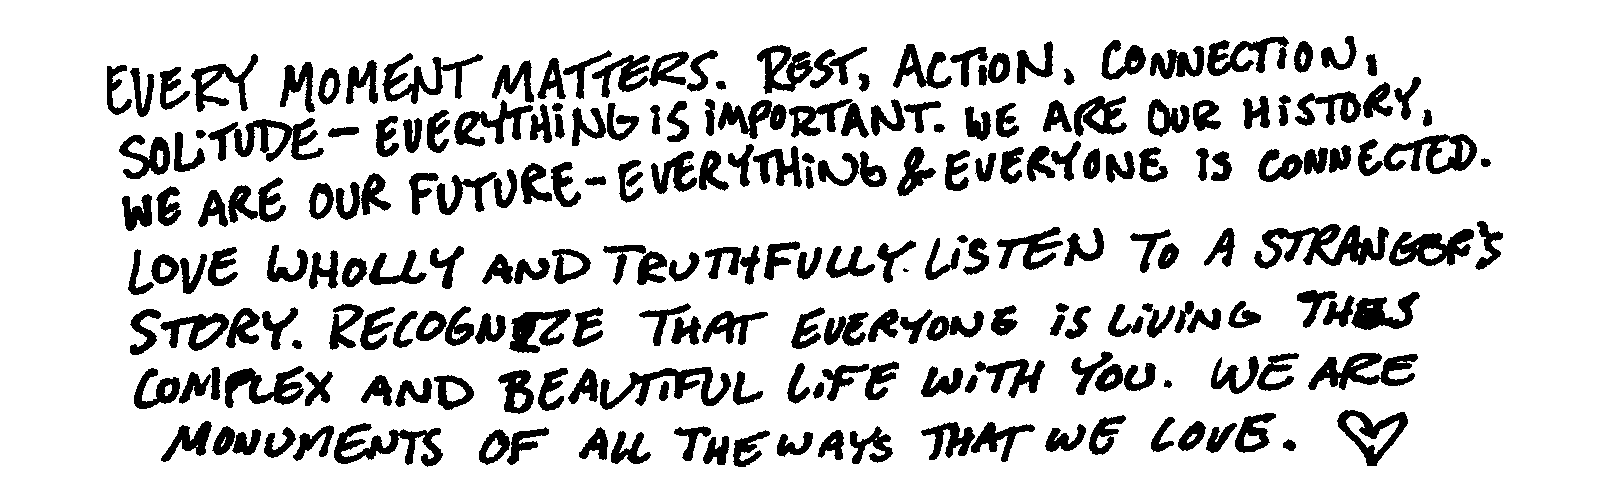 EVERY MOMENT MATTERS. REST, ACTION, CONNECTION,
SOLITUDE – EVERYTHING IS IMPORTANT. WE ARE OUR HISTORY,
WE ARE OUR FUTURE – EVERYTHING & EVERYONE IS CONNECTED.
LOVE WHOLLY AND TRUTHFULLY. LISTEN TO A STRANGER'S
STORY. RECOGNIZE THAT EVERYONE IS LIVING THIS
COMPLEX AND BEAUTIFUL LIFE WITH YOU. WE ARE
MONUMENTS OF ALL THE WAYS THAT WE LOVE. ♡